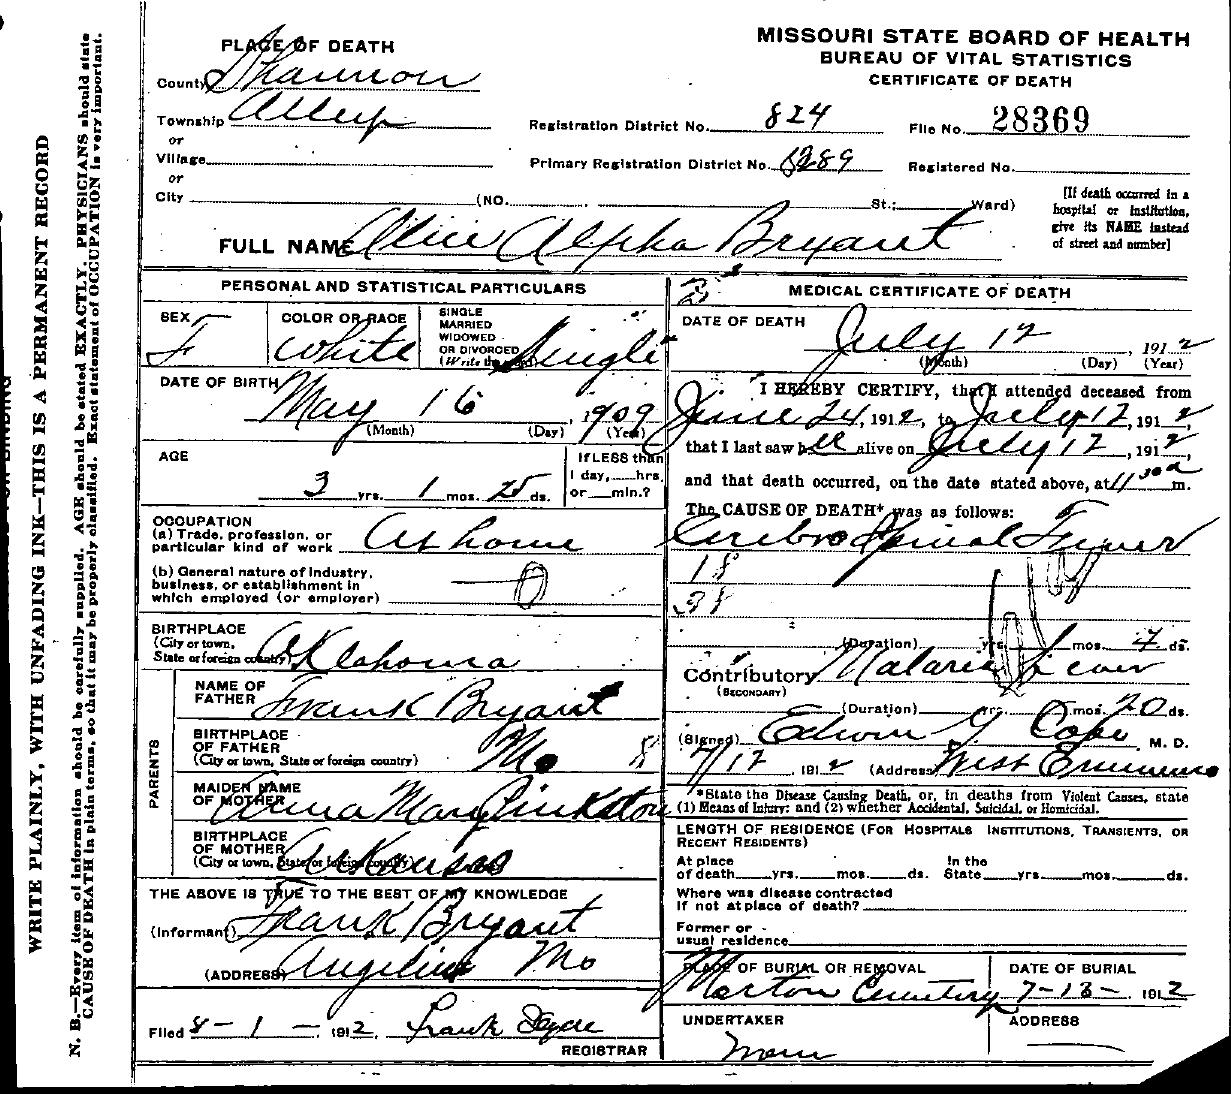 MISSOURI STATE BOARD OF HEALTH
BUREAU OF VITAL STATISTICS
CERTIFICATE OF DEATH
PLACE OF DEATH
County Shannon
Township Alley
or
Village
or
City (NO. St.; Ward)
Registration District No. 824 File No. 28369
Primary Registration District No. 6289 Registered No.
[If death occurred in a
hospital or institution,
give its NAME instead
of street and number]
FULL NAME Alice Alpha Bryant
PERSONAL AND STATISTICAL PARTICULARS
SEX F
COLOR OR RACE White
SINGLE
MARRIED
WIDOWED
OR DIVORCED
(Write the Single
DATE OF BIRTH May 16, 1909
(Month) (Day) (Year)
AGE
3 yrs. 1 mos. 25 ds.
If LESS than
1 day, hrs.
or min.?
OCCUPATION
(a) Trade, profession, or
particular kind of work At home
(b) General nature of industry,
business, or establishment in
which employed (or employer) 0
BIRTHPLACE
(City or town,
State or foreign country) Oklahoma
PARENTS
NAME OF
FATHER Frank Bryant
BIRTHPLACE
OF FATHER
(City or town, State or foreign country) Mo 8
MAIDEN NAME
OF MOTHER Anna Mary Pinkston
BIRTHPLACE
OF MOTHER
(City or town, State or foreign country) Arkansas
THE ABOVE IS TRUE TO THE BEST OF MY KNOWLEDGE
(Informant) Frank Bryant
(ADDRESS) Angeline Mo
Filed 8-1-, 1912 Frank
REGISTRAR
MEDICAL CERTIFICATE OF DEATH
DATE OF DEATH July 12, 1912
(Month) (Day) (Year)
I HEREBY CERTIFY, that I attended deceased from
June 24, 1912, to July 12, 1912,
that I last saw her alive on July 12, 1912,
and that death occurred, on the date stated above, at 11 30 a m.
The CAUSE OF DEATH* was as follows:
Cerebro Spinal Fever
18
38
(Duration) yrs. 1 mos. 4 ds.
Contributory Malaria Fever
(SECONDARY)
(Duration) yrs. mos. 20 ds.
(Signed) Edwin M. D.
7/12, 1912 (Address) West Eminence
*State the Disease Causing Death, or, in deaths from Violent Causes, state
(1) Means of Injury; and (2) whether Accidental, Suicidal, or Homicidal.
LENGTH OF RESIDENCE (FOR HOSPITALS INSTITUTIONS, TRANSIENTS, OR
RECENT RESIDENTS)
At place
of death yrs. mos. ds.
In the
State yrs. mos. ds.
Where was disease contracted
If not at place of death?
Former or
usual residence
PLACE OF BURIAL OR REMOVAL
Morton Cemetery
DATE OF BURIAL
7-13-, 1912
UNDERTAKER
None
ADDRESS
WRITE PLAINLY, WITH UNFADING INK—THIS IS A PERMANENT RECORD
N. B.—Every item of information should be carefully supplied. AGE should be stated EXACTLY. PHYSICIANS should state
CAUSE OF DEATH in plain terms, so that it may be properly classified. Exact statement of OCCUPATION is very important.